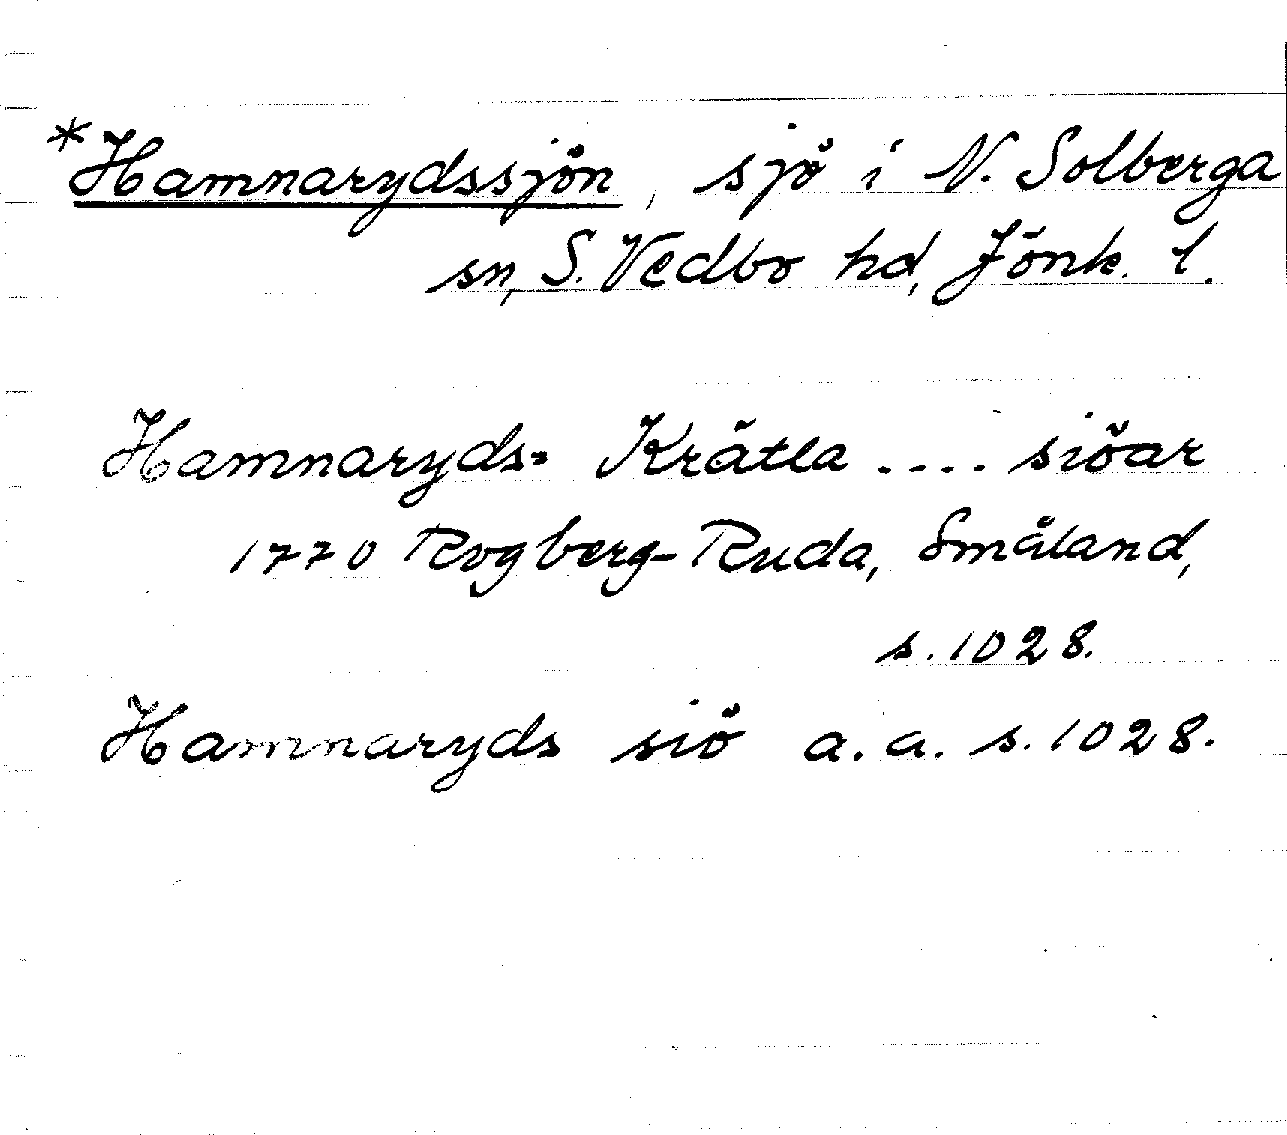 *Hamnarydssjön, sjö i N. Solberga
sn, S. Vedbo hd, Jönk. l.
Hamnaryds= Krätla .... siöar
1770 Rogberg-Ruda, Småland,
s. 1028.
Hamnaryds siö a. a. s. 1028.